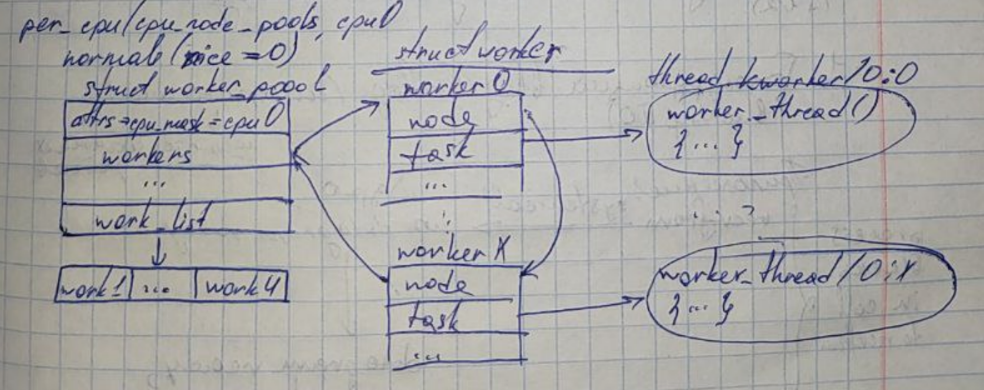 per_cpu(cpu_node_pools, cpu0
normal (nice=0)
struct worker_poool
attrs→cpu_mask=cpu0
workers
...
work_list
work1 ... work4
struct worker
worker 0
node
task
...
worker X
node
task
...
thread kworker/0:0
worker_thread()
{...}
... ?
worker_thread/0:X
{...}